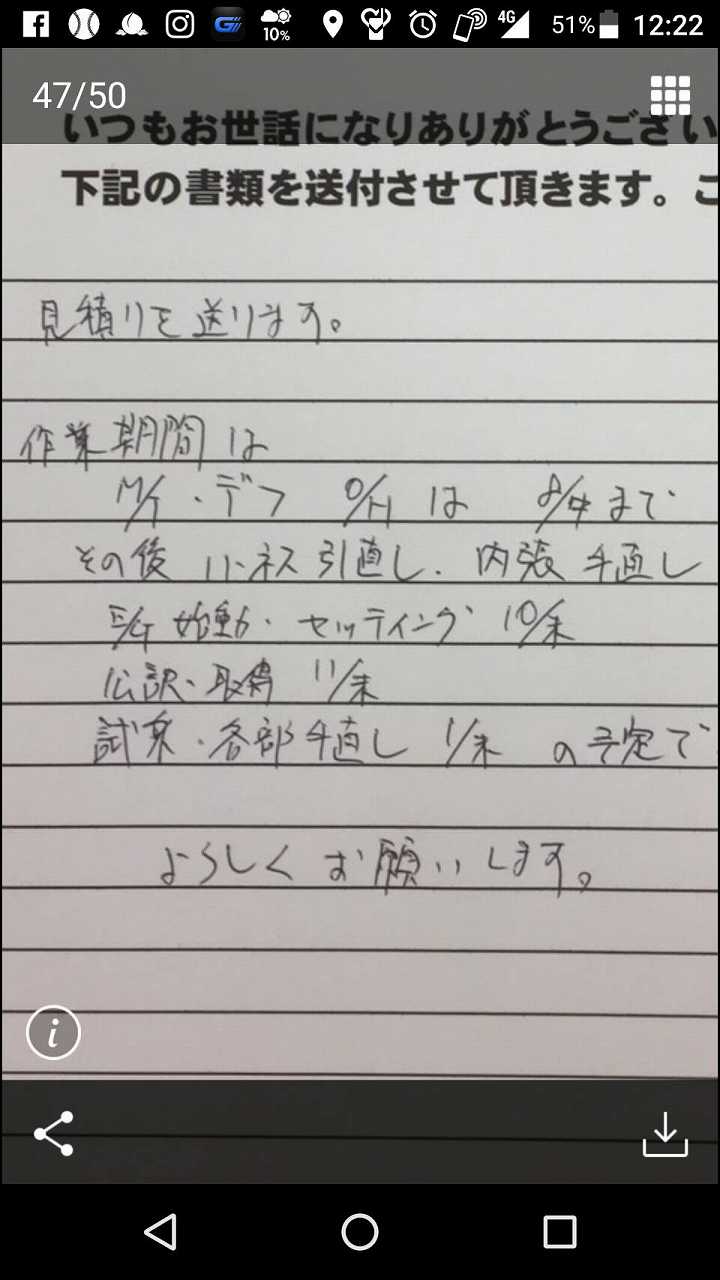 4G 51% 12:22
10%
47/50
いつもお世話になりありがとうござい
下記の書類を送付させて頂きます。こ
見積りを送ります。
作業期間は
M/T・デフ O/Hは 8/中まで
その後 ハーネス引直し、内張手直し
E/G始動・セッティング 10/末
公認・取得 11/末
試乗・各部手直し 1/末 の予定で
よろしくお願いします。